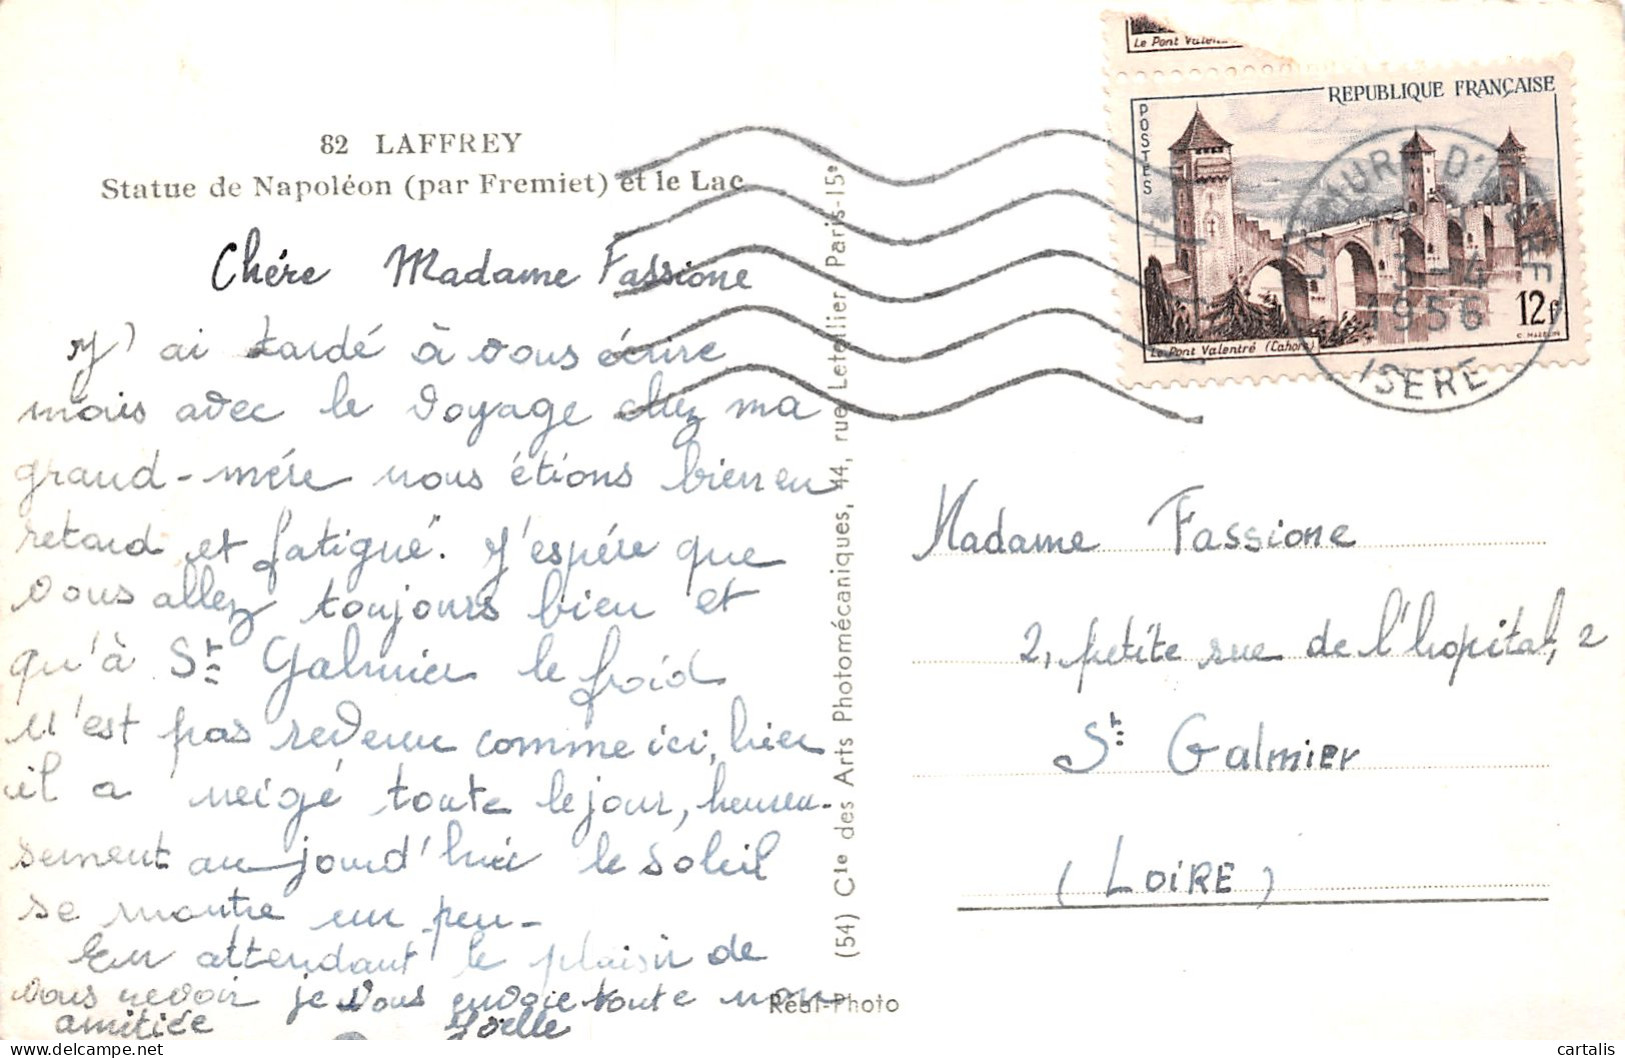 82 LAFFREY
Statue de Napoléon (par Fremiet) et le Lac
Chére Madame Fassione
J'ai tardé à vous écrire
mais avec le voyage chez ma
grand-mére nous étions bien en
retard et fatigué. J'espére que
vous allez toujours bien et
qu'à St Galmier le froid
n'est pas revenu comme ici, hier
il a neigé toute le jour, heureu-
sement aujourd'hui le soleil
se montre un peu-
En attendant le plaisir de
vous revoir je vous envoie toute mon
amitiée Joëlle
(54) Cie des Arts Photomécaniques, 44, rue Letellier, Paris-15e
Réal-Photo
Le Pont Valen
REPUBLIQUE FRANÇAISE
POSTES
12f
Le Pont Valentré (Cahors)
C. MAZELIN
LA MURE D'ISERE
3-4
1956
ISERE
Madame Fassione
2, petite rue de l'hopital, 2
St Galmier
(LOIRE)
cartalis